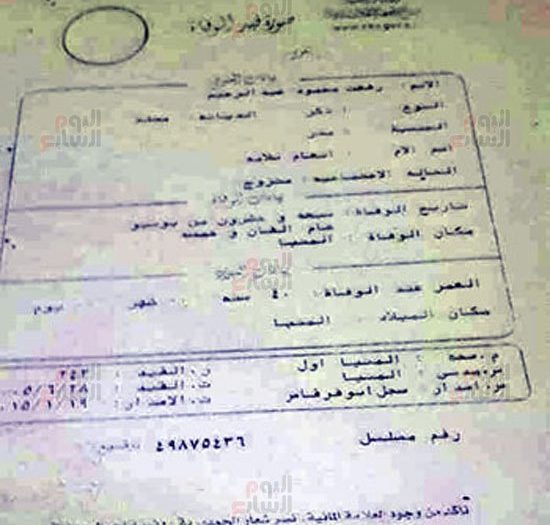 صورة قيد الوفاة
بيانات المتوفى
الاسم : رفعت محمود عبد الرحيم
النوع : ذكر الديانة :
الجنسية : مصر
اسم الام : انعام سلامه
الحالة الاجتماعية : متزوج
بيانات الوفاة
تاريخ الوفاة : سبعة و عشرون من يونيو
عام الفان و خمسه
مكان الوفاة : المنيا
العمر عند الوفاة : ٤٠ سنه ٠٠ شهر ٠٠ يوم
مكان الميلاد : المنيا
م.صحة : المنيا اول ر.القيد : ٢٤٣
س.مدني : المنيا ت.القيد : ٥/٦/٢٨
م.اصدار : سجل ابوقرقاص ت.الاصدار : ١٥/١/١٩
رقم مسلسل ٤٩٨٧٥٤٣٦
تأكد من وجود العلامة المائية، نسر شعار الجمهورية
اليوم السابع